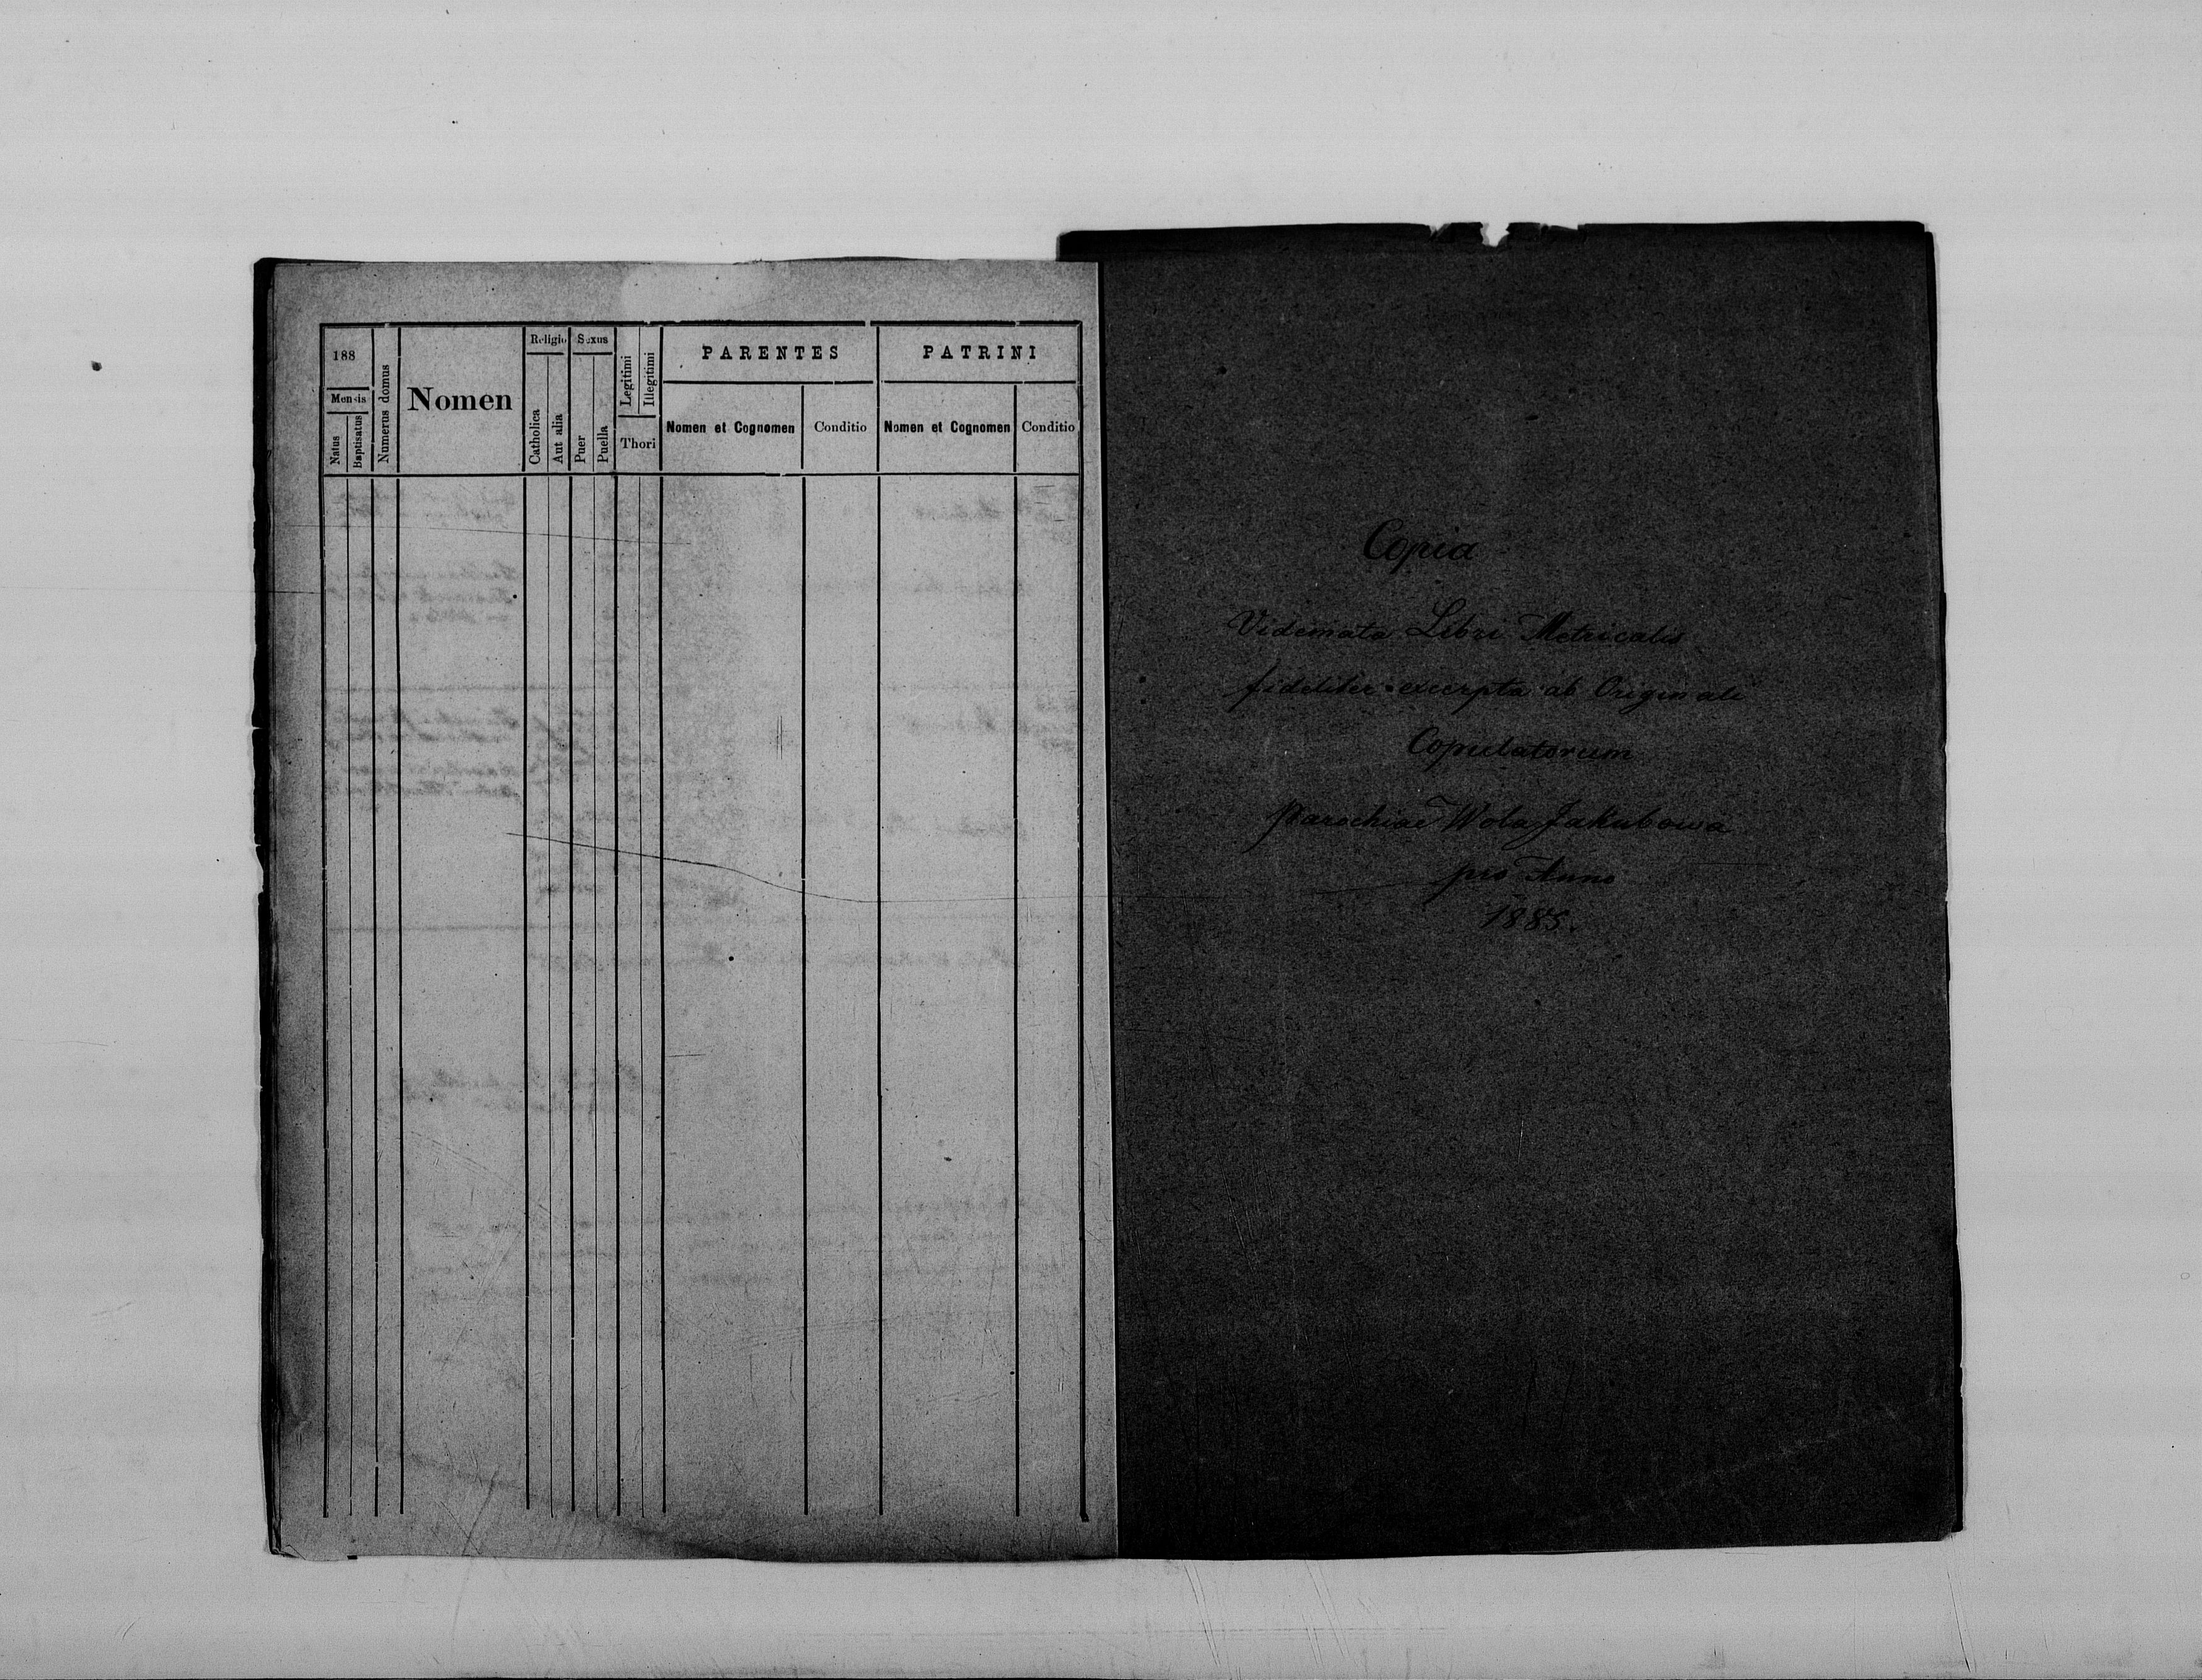 188
Mensis
Natus
Baptisatus
Numerus domus
Nomen
Religio
Catholica
Aut alia
Sexus
Puer
Puella
Legitimi
Illegitimi
Thori
PARENTES
Nomen et Cognomen
Conditio
PATRINI
Nomen et Cognomen
Conditio
Copia
Vidimata Libri Metricalis
fideliter excerpta ab Originali
Copulatorum
Parochiae Wola Jakubowa
pro Anno
1885.